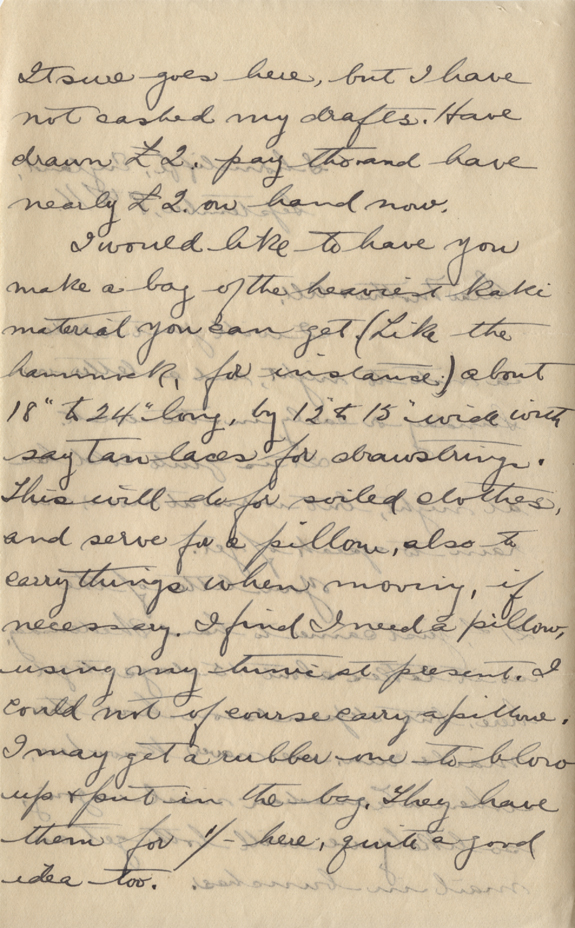 It sure goes here, but I have
not cashed my drafts. Have
drawn £2. pay tho and have
nearly £2. on hand now.
I would like to have you
make a bag of the heaviest kaki
material you can get (Like the
hammock, for instance;) about
18" to 24" long, by 12 to 15" wide with
say tan laces for drawstrings.
This will do for soiled clothes,
and serve for a pillow, also to
carry things when moving, if
necessary. I find I need a pillow,
using my tunic at present. I
could not of course carry a pillow.
I may get a rubber one to blow
up & put in the bag. They have
them for 1/- here, quite a good
idea too.